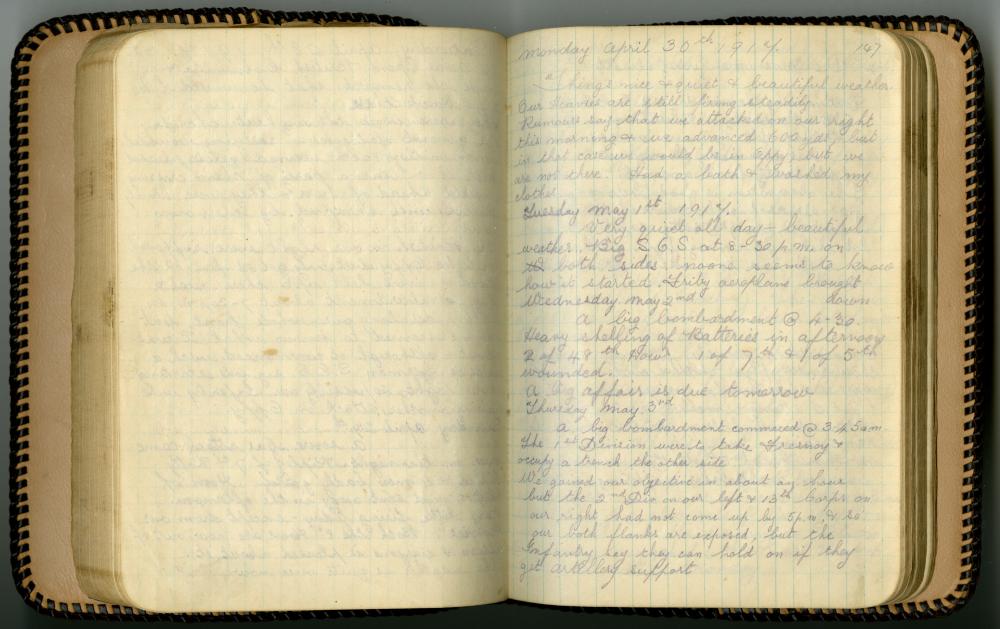 Monday April 30th 1917. 147
"Things nice & quiet & beautiful weather.
Our heavies are still firing steadily.
Rumours say that we attacked on our right
this morning & we advanced 600 yds, but
in that case we would be in Oppy, but we
are not there. Had a bath & washed my
clothes.
Tuesday May 1st 1917.
Very quiet all day – beautiful
weather. Big S.O.S. at 8-30 p.m. on
both sides noone seems to know
how it started. Fritz aeroplane brought
down
Wednesday May 2nd
A big bombardment @ 4-30.
Heavy shelling of Batteries in afternoon
2 of 48th Hows 1 of 7th & 1 of 5th
wounded.
A big affair is due tomorrow
Thursday May 3rd
A big bombardment commenced @ 3.45am
The 1st Division were to take Fresnoy &
occupy a trench the other site
We gained our objective in about an hour
but the 2nd Div on our left & 13th Corps on
our right had not come up by 5 p.m. & so
our both flanks are exposed, but the
Infantry say they can hold on if they
get artillery support